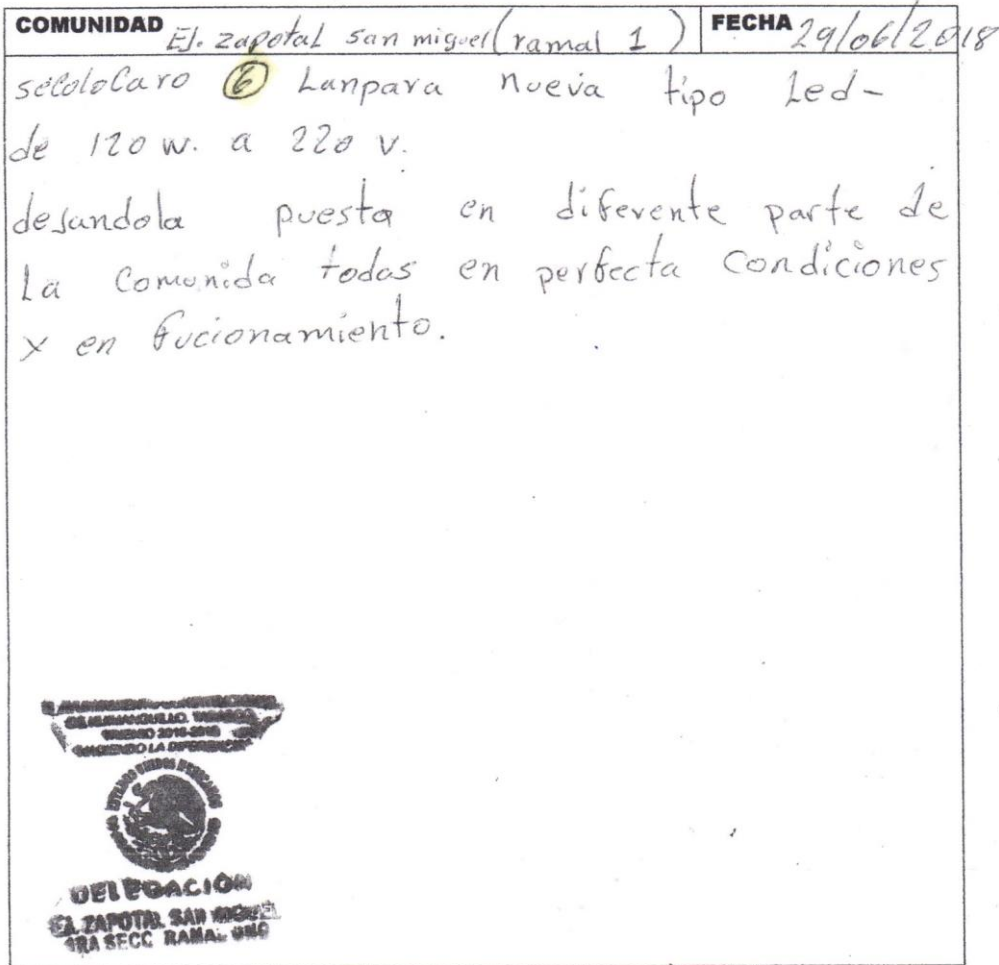 COMUNIDAD Ej. zapotal san miguel (ramal 1) FECHA 29/06/2018
secolocaro 6 Lanpara nueva tipo Led-
de 120 w. a 220 v.
desandola puesta en diferente parte de
La Comunida todas en perfecta Condiciones
y en fucionamiento.
DE HUIMANGUILLO, TABASCO
TRIENIO 2016-2018
HACIENDO LA DIFERENCIA
ESTADOS UNIDOS MEXICANOS
DELEGACIÓN
EL ZAPOTAL SAN MIGUEL
1RA SECC RAMAL UNO